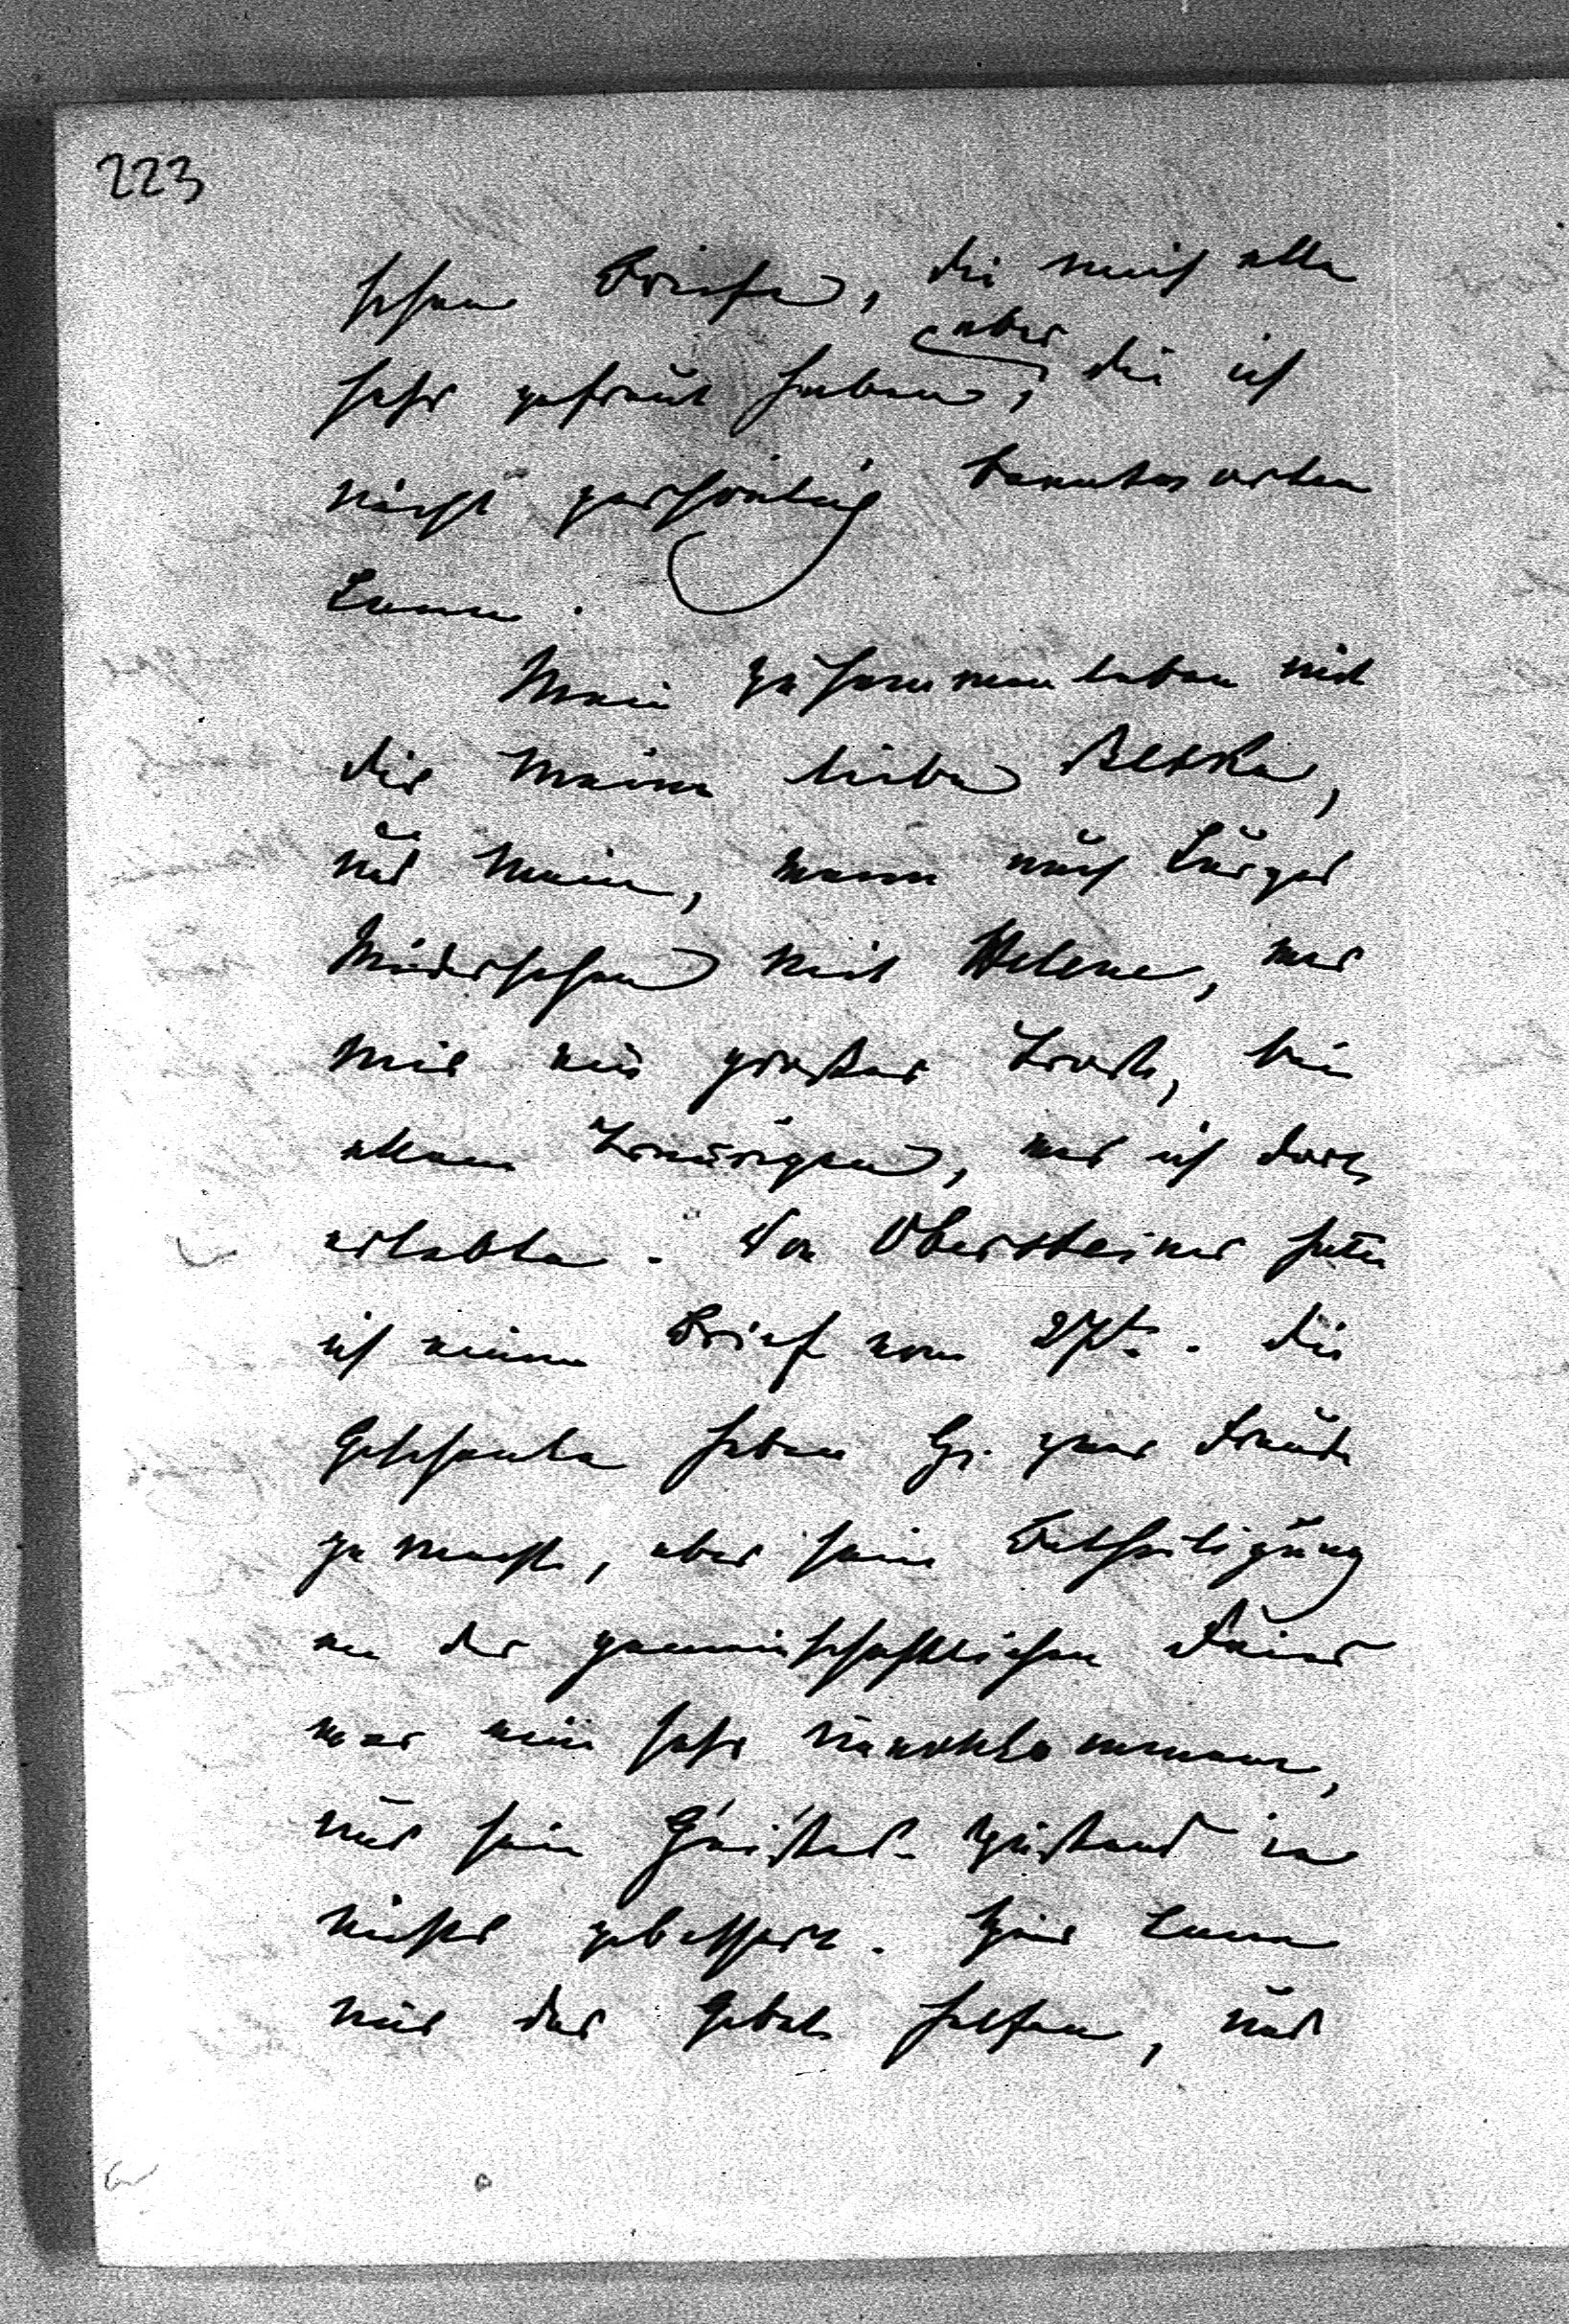 223
schen Briefe, die mich alle
aber
sehr gefreut haben, die ich
nicht persönlich beantworten
kann.
Mein Zusammenleben mit
dir meine liebe
und mein, wenn auch kurzes
Wiedersehen mit Helene, war
mir ein großer Trost, bei
allem Traurigen, was ich dort
erlebte. Von Obersteiner hatte
ich einen Brief vom 27t. Die
Geschenke haben ihm zwar Freude
gemacht, aber seine Betheiligung
an der gemeinschaftlichen Feier
war eine sehr unvollkommene,
und sein Geistes-Zustand in
nichts gebessert. Hier kann
nur das Gebet helfen, und